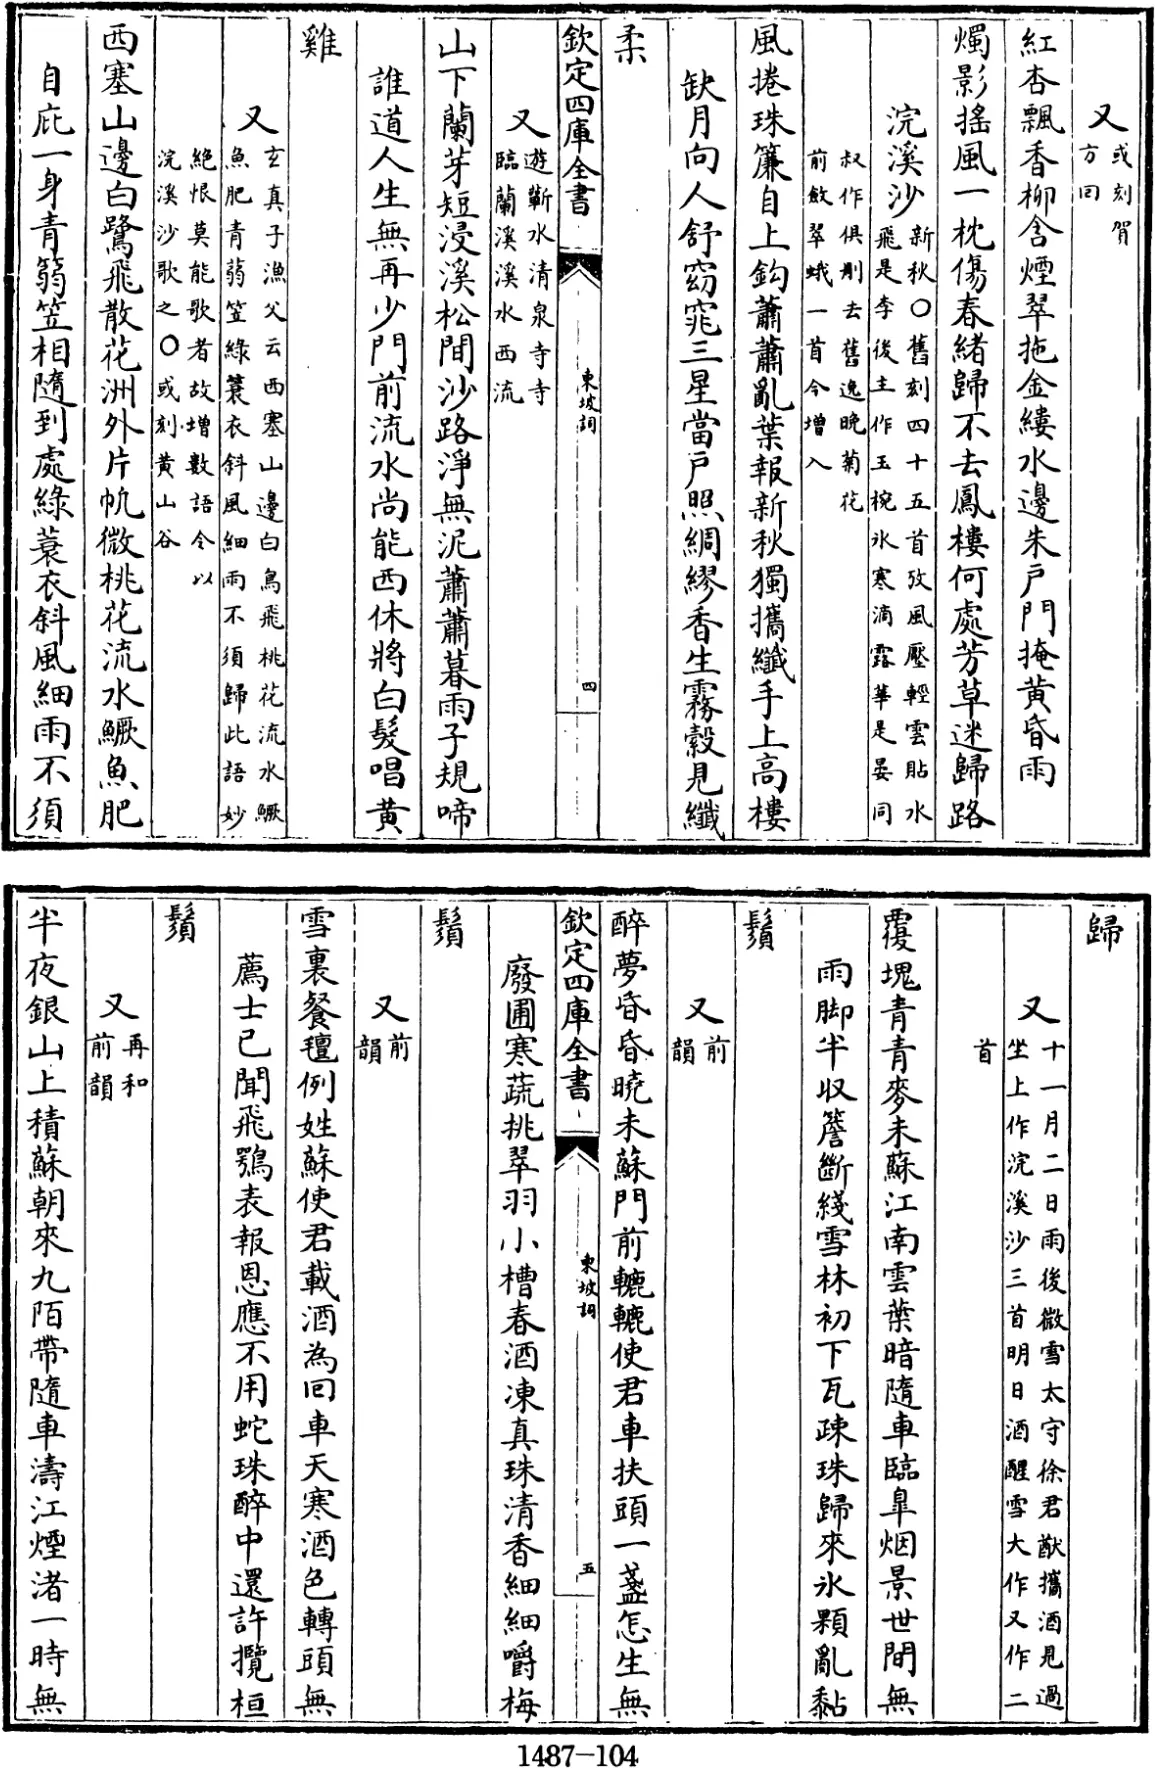 又或刻賀
方回
紅杏飄香柳含煙翠拖金縷水邊朱戸門掩黄昏雨
燭影搖風一枕傷春緒歸不去鳳樓何處芳草迷歸路
浣溪沙新秋〇舊刻四十五首攷風壓輕雲貼水
飛是李後主作玉椀氷寒滴露華是晏同
叔作俱刪去舊逸晚菊花
前斂翠蛾一首今增入
風捲珠簾自上鈎蕭蕭亂葉報新秋獨攜纖手上高樓
缺月向人舒窈窕三星當戸照綢繆香生霧縠見纖
柔
欽定四庫全書
東坡詞
四
又遊蘄水清泉寺寺
臨蘭溪溪水西流
山下蘭芽短浸溪松間沙路淨無泥蕭蕭暮雨子規啼
誰道人生無再少門前流水尚能西休將白髮唱黄
雞
又玄真子漁父云西塞山邊白鳥飛桃花流水鱖
魚肥青蒻笠綠蓑衣斜風細雨不須歸此語妙
絶恨莫能歌者故增數語令以
浣溪沙歌之〇或刻黄山谷
西塞山邊白鷺飛散花洲外片帆微桃花流水鱖魚肥
自庇一身青蒻笠相隨到處綠蓑衣斜風細雨不須
歸
又十一月二日雨後微雪太守徐君猷攜酒見過
坐上作浣溪沙三首明日酒醒雪大作又作二
首
覆塊青青麥未蘇江南雲葉暗隨車臨臯烟景世間無
雨脚半收簷斷綫雪林初下瓦疎珠歸來氷顆亂黏
鬚
又前
韻
醉夢昏昏曉未蘇門前轆轆使君車扶頭一盞怎生無
欽定四庫全書
東坡詞
五
廢圃寒蔬挑翠羽小槽春酒凍真珠清香細細嚼梅
鬚
又前
韻
雪裏餐氊例姓蘇使君載酒為回車天寒酒色轉頭無
薦士已聞飛鶚表報恩應不用蛇珠醉中還許攬桓
鬚
又再和
前韻
半夜銀山上積蘇朝來九陌帶隨車濤江煙渚一時無
1487—104